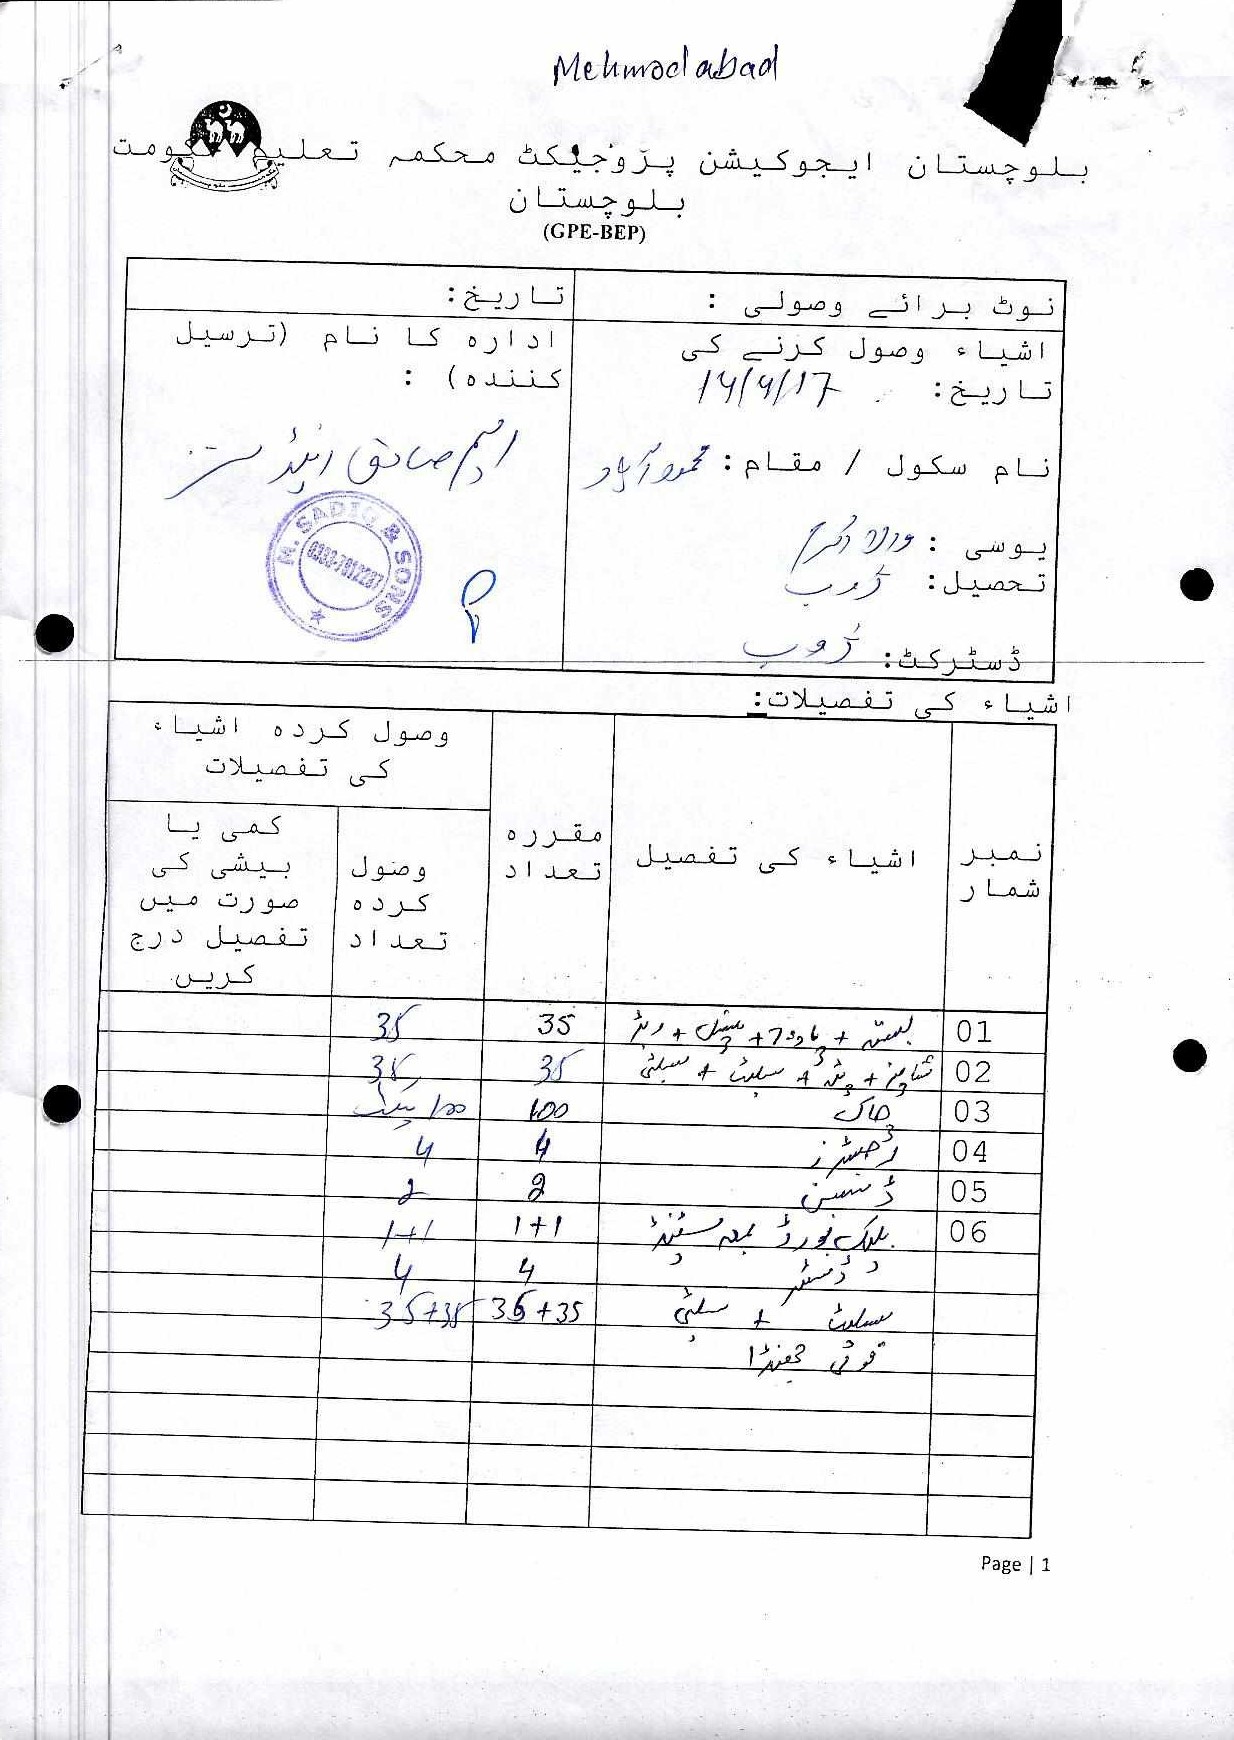 Mehmod abad
بلوچستان ایجوکیشن پروجیکٹ محکمہ تعلیم حکومت
بلوچستان
(GPE-BEP)
نوٹ برائے وصولی :
تاریخ:
اشیاء وصول کرنے کی
تاریخ: 14/4/17
نام سکول / مقام: محمود آباد
یوسی :
تحصیل: ژوب
ڈسٹرکٹ: ژوب
ادارہ کا نام (ترسیل
کنندہ) :
ایم صادق اینڈ سنز
M. SADIQ & SONS
اشیاء کی تفصیلات:
نمبر شمار
اشیاء کی تفصیل
مقررہ تعداد
وصول کردہ اشیاء کی تفصیلات
وصول کردہ تعداد
کمی یا بیشی کی صورت میں تفصیل درج کریں
01 بستہ + + پنسل + ربڑ 35 35
02 شاپنر + + سلیٹ + سلیٹی 35 35
03 چاک 100 100 پیکٹ
04 رجسٹرز 4 4
05 ڈسٹ بن 2 2
06 بلیک بورڈ بمعہ سٹینڈ 1+1 1+1
ڈسٹر 4 4
سلیٹ + سلیٹی 35+35 35+35
قومی جھنڈا
Page | 1